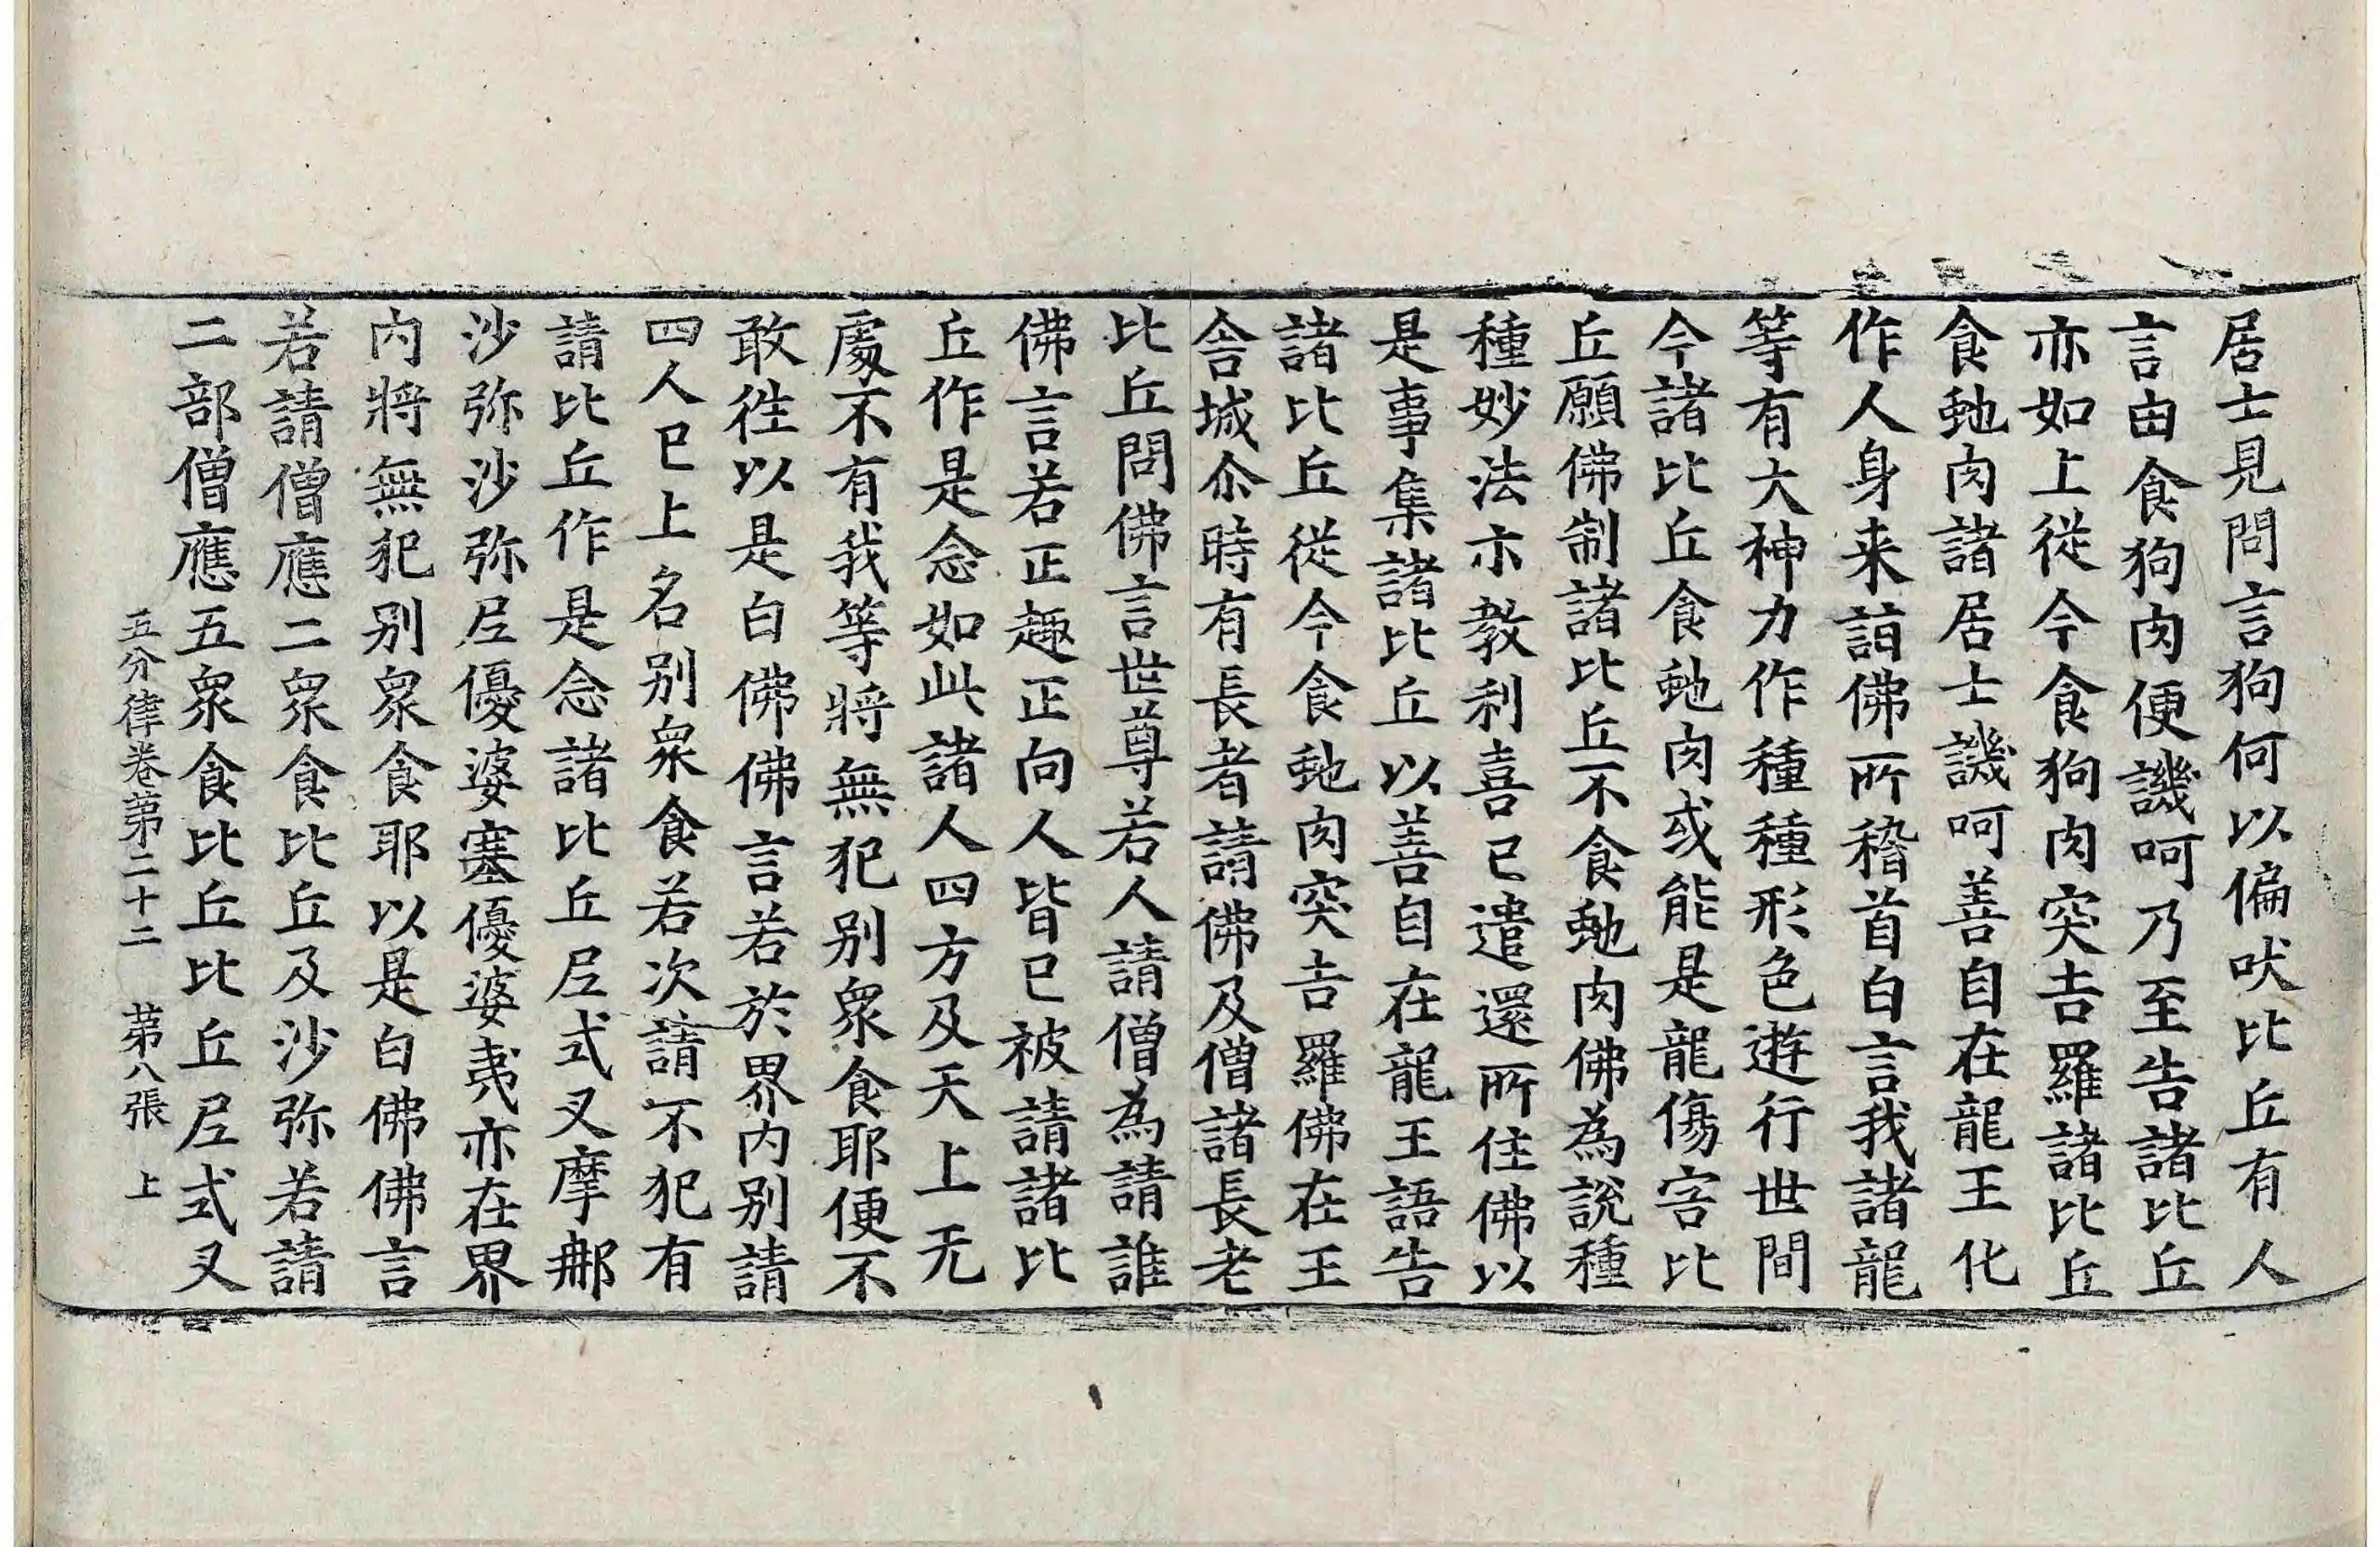 居士見問言狗何以偏吠比丘有人
言由食狗肉便譏呵乃至告諸比丘
亦如上從今食狗肉突吉羅諸比丘
食虵肉諸居士譏呵善自在龍王化
作人身来詣佛所稽首白言我諸龍
等有大神力作種種形色遊行世間
今諸比丘食虵肉或能是龍傷害比
丘願佛制諸比丘不食虵肉佛為說種
種妙法示教利喜已遣還所住佛以
是事集諸比丘以善自在龍王語告
諸比丘從今食虵肉突吉羅佛在王
舎城尒時有長者請佛及僧諸長老
比丘問佛言世尊若人請僧為請誰
佛言若正趣正向人皆已被請諸比
丘作是念如此諸人四方及天上无
處不有我等將無犯別衆食耶便不
敢徃以是白佛佛言若於界内別請
四人已上名別衆食若次請不犯有
請比丘作是念諸比丘尼式叉摩那
沙弥沙弥尼優婆塞優婆夷亦在界
内將無犯別衆食耶以是白佛佛言
若請僧應二衆食比丘及沙弥若請
二部僧應五衆食比丘比丘尼式叉
五分律卷第二十二　第八張　上